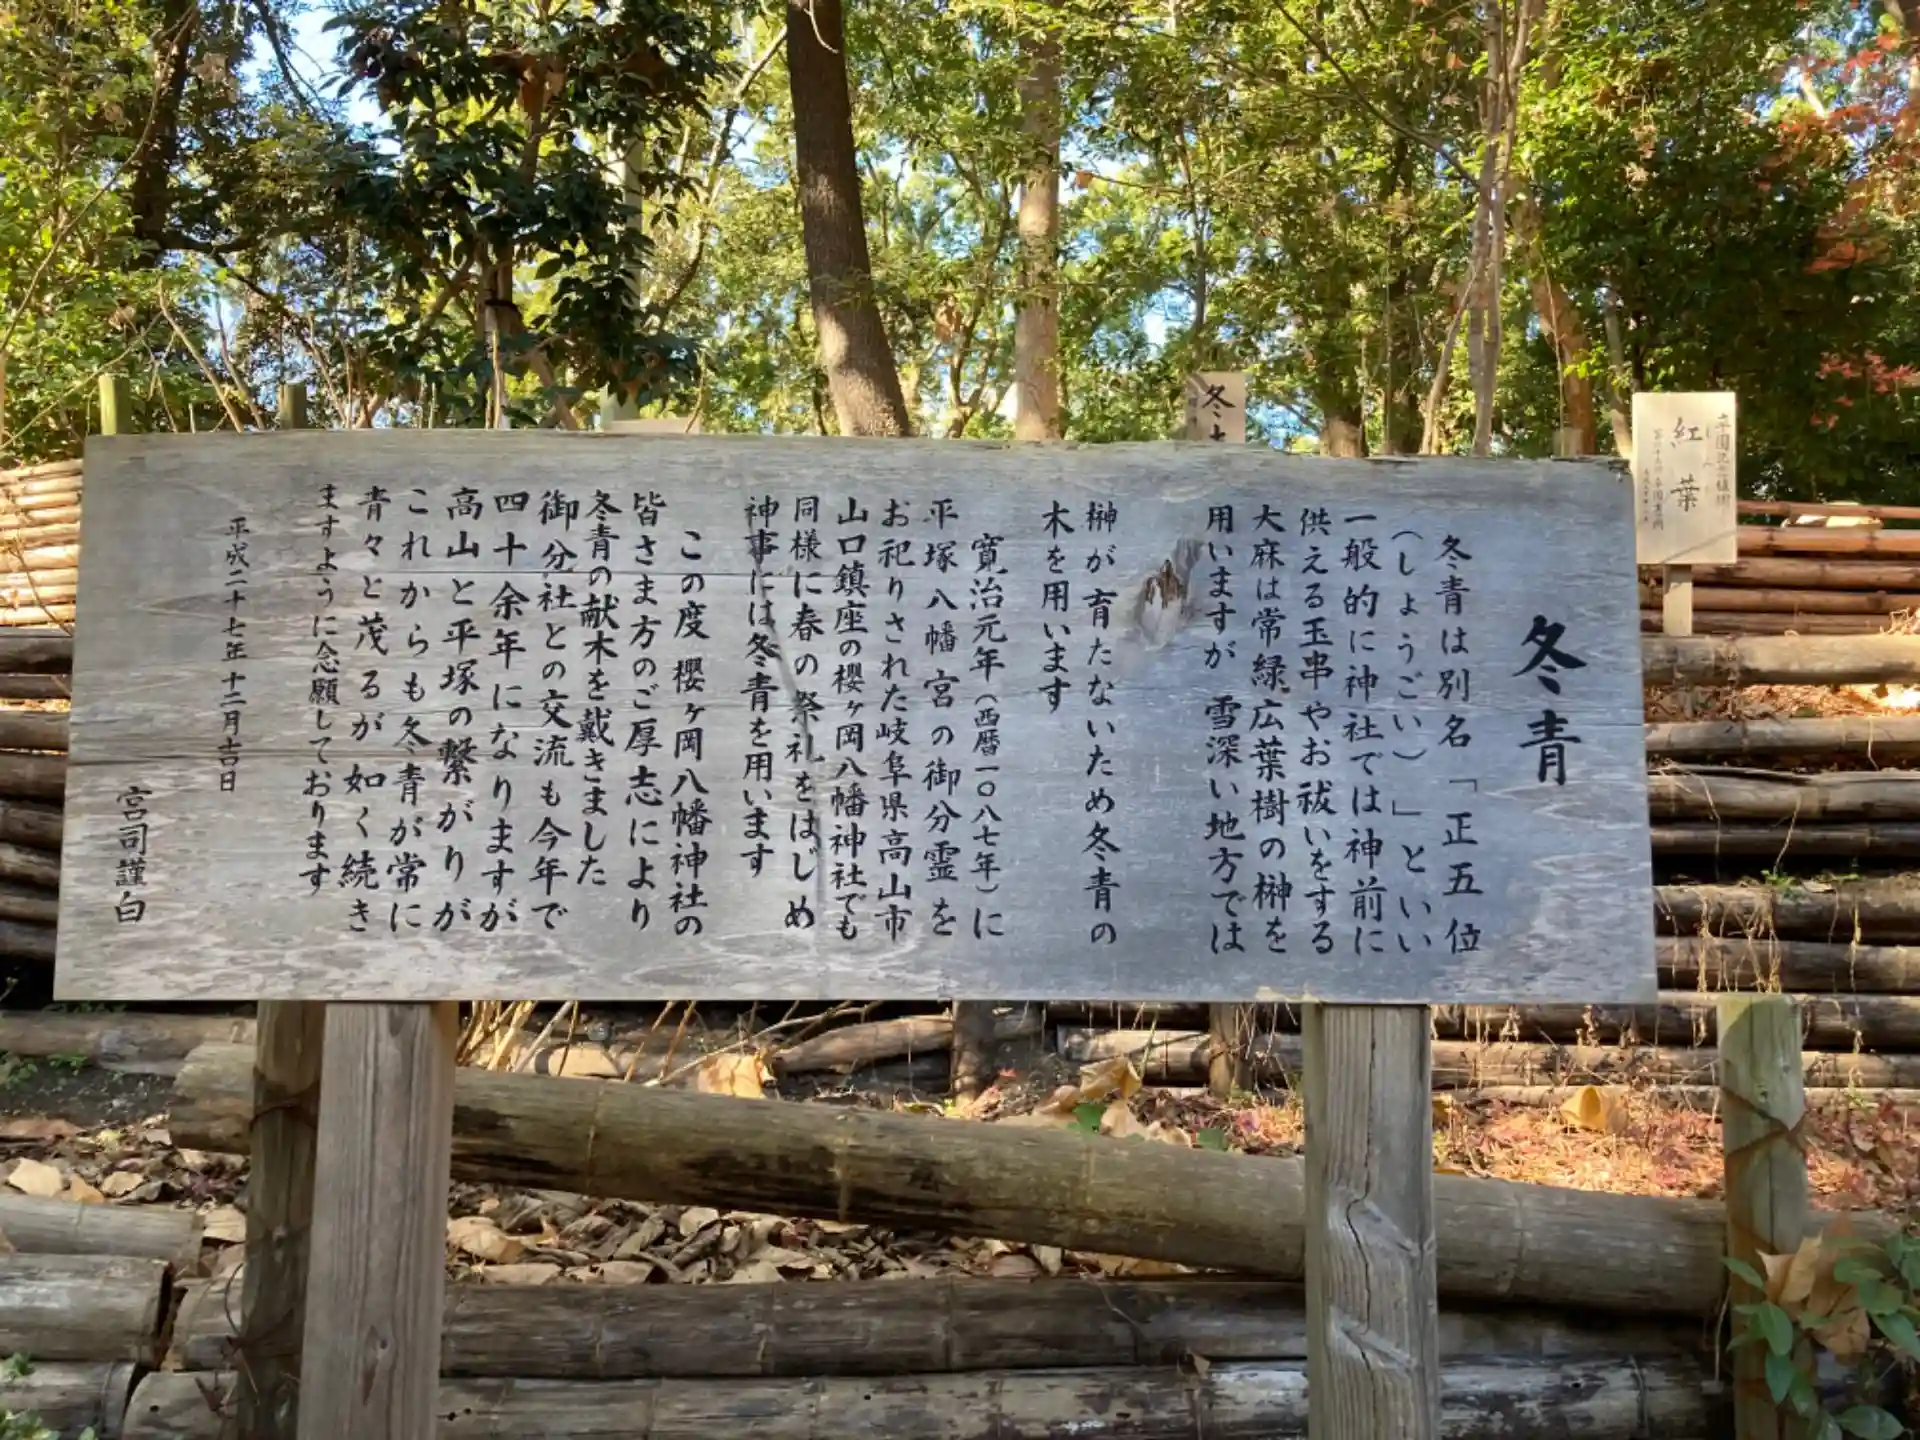 冬青
冬青は別名「正五位
(しょうごい)」といい
一般的に神社では神前に
供える玉串やお祓いをする
大麻は常緑広葉樹の榊を
用いますが 雪深い地方では
榊が育たないため冬青の
木を用います
寛治元年(西暦一〇八七年)に
平塚八幡宮の御分霊を
お祀りされた岐阜県高山市
山口鎮座の櫻ヶ岡八幡神社でも
同様に春の祭礼をはじめ
神事には冬青を用います
この度 櫻ヶ岡八幡神社の
皆さま方のご厚志により
冬青の献木を戴きました
御分社との交流も今年で
四十余年になりますが
高山と平塚の繋がりが
これからも冬青が常に
青々と茂るが如く続き
ますように念願しております
平成二十七年十二月吉日
宮司謹白
紅葉
冬